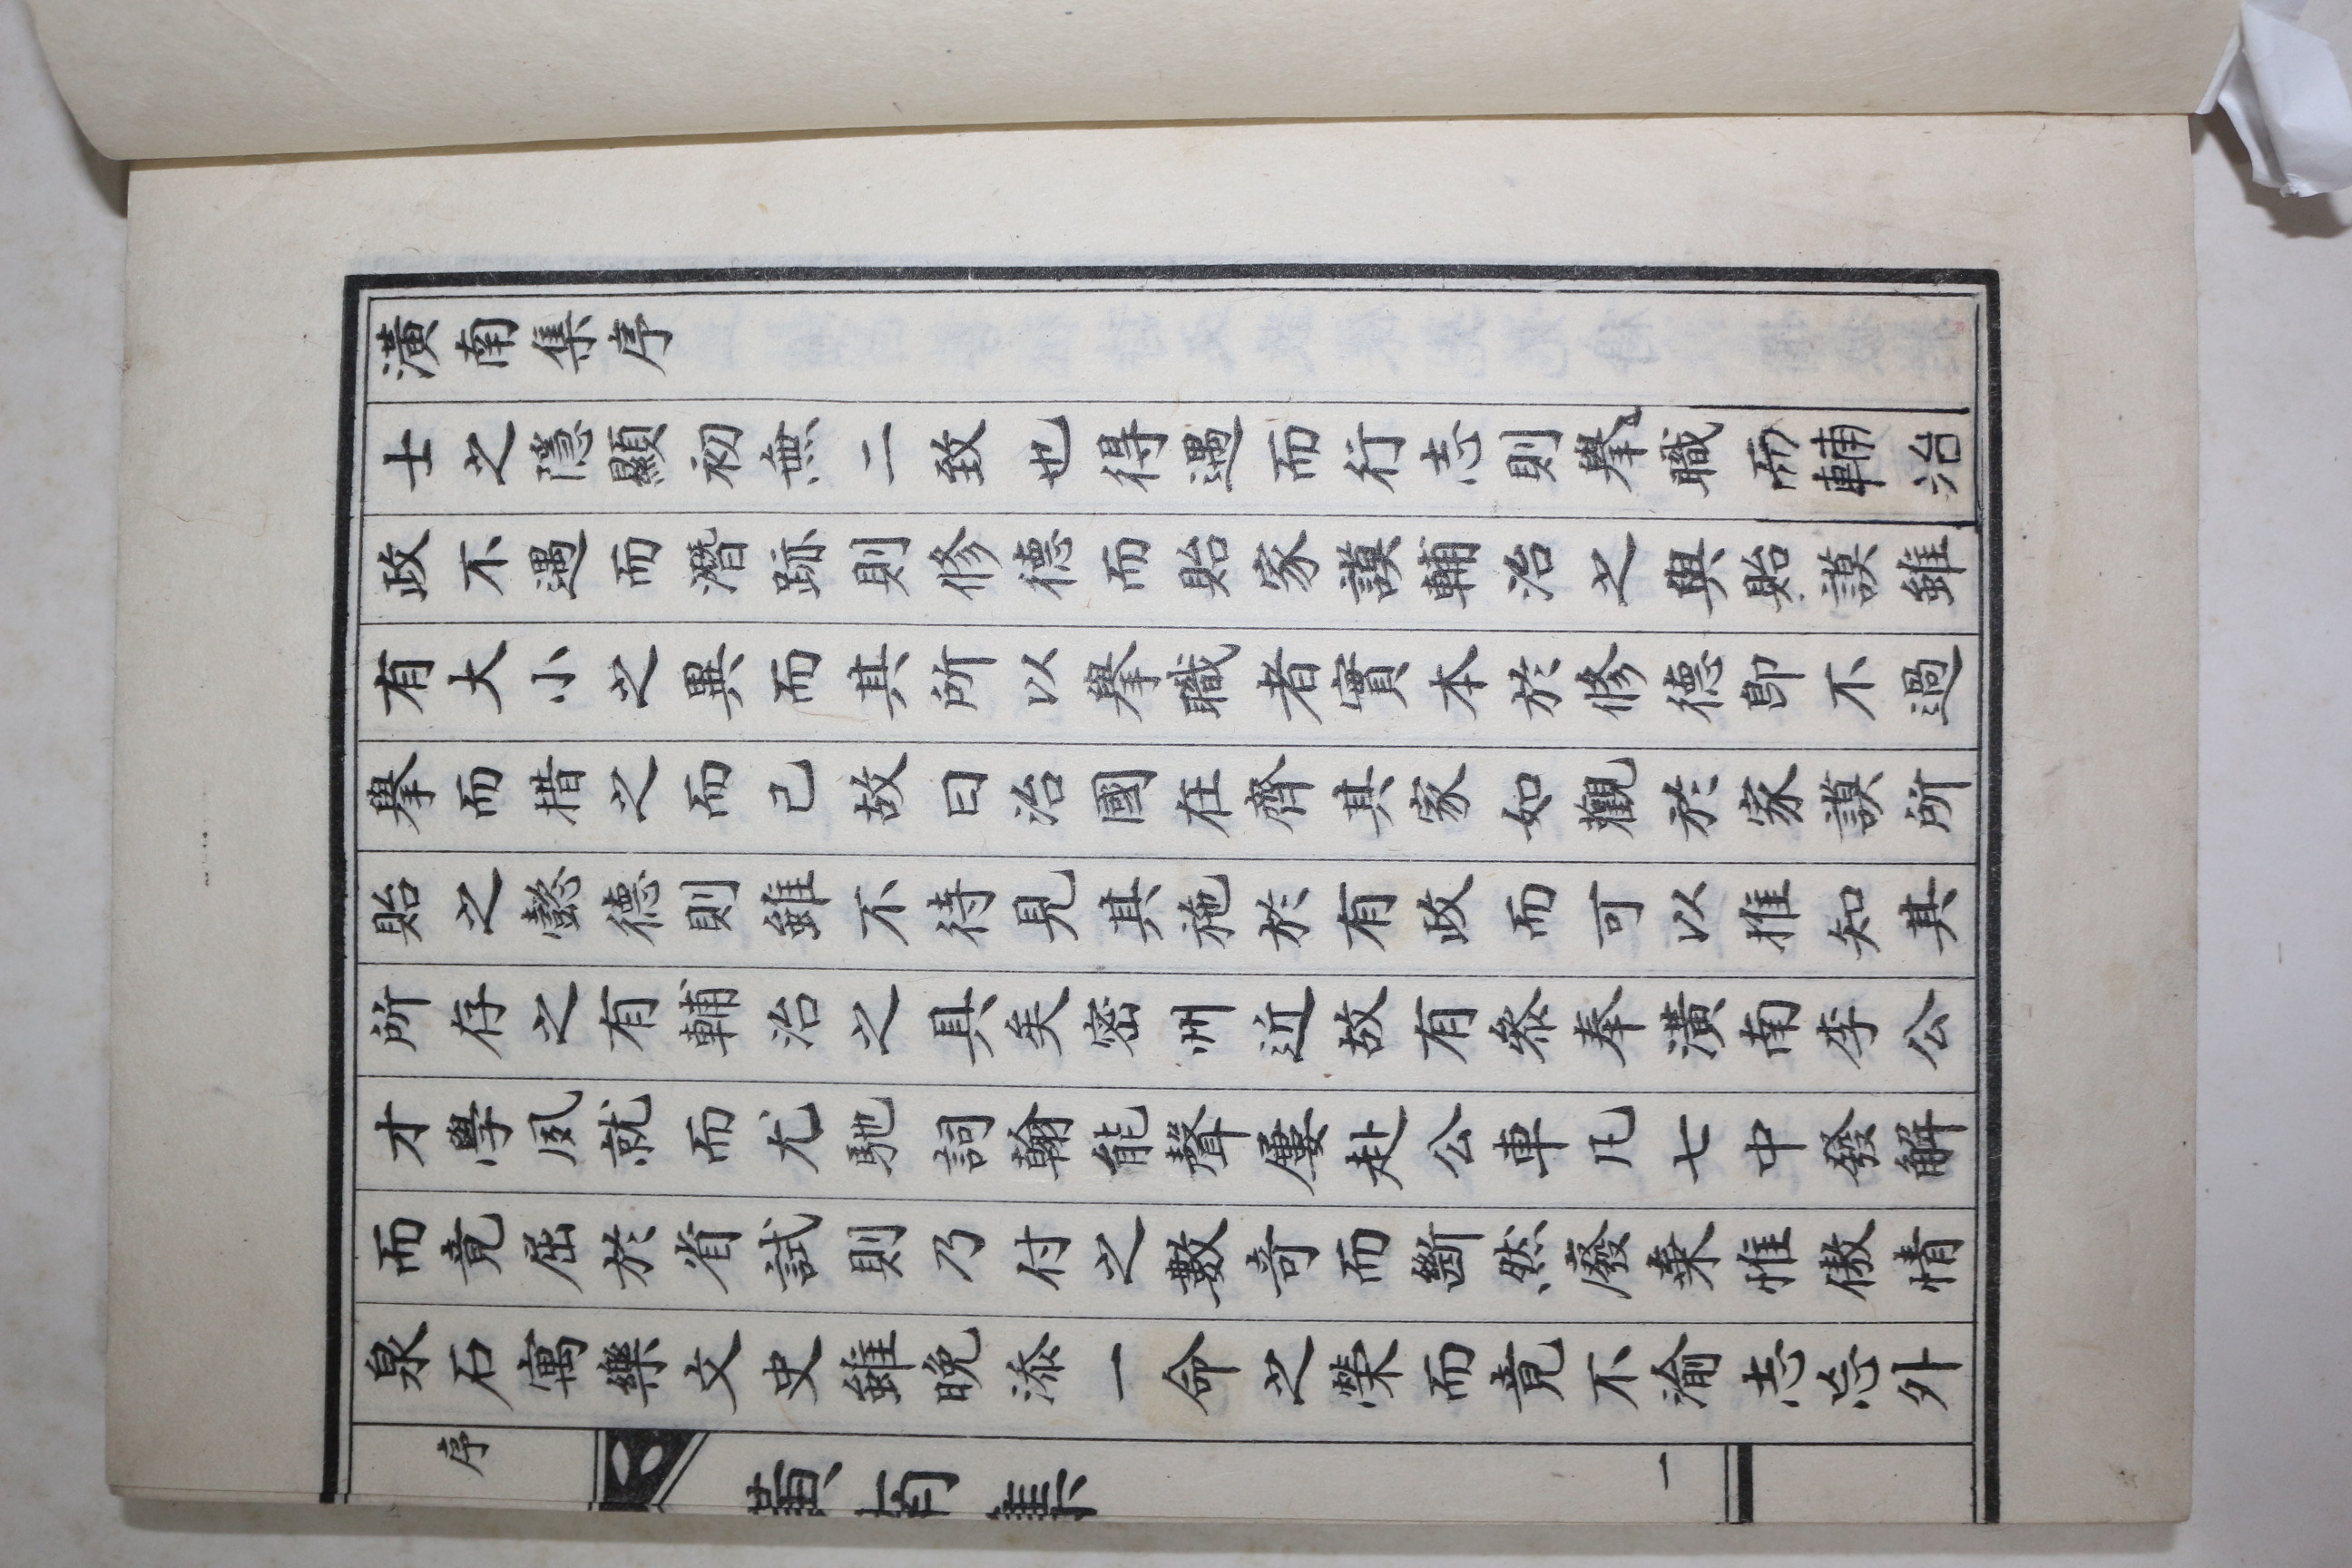 潢南集序
士之隱顯初無二致也得遇而行志則擧職而輔治
政不遇而潛跡則修德而貽家謨輔治之與貽謨雖
有大小之異而其所以擧職者實本於修德卽不過
擧而措之而己故曰治國在齊其家如觀於家謨所
貽之懿德則雖不待見其施於有政而可以推知其
所存之有輔治之具矣密州近故有叅奉潢南李公
才學夙就而尤馳詞翰能聲屢赴公車凡七中發解
而竟屈於省試則乃付之數奇而斷然廢棄惟傲情
泉石寓樂文史雖晩添一命之榮而竟不渝志忘外
序
潢南集
一